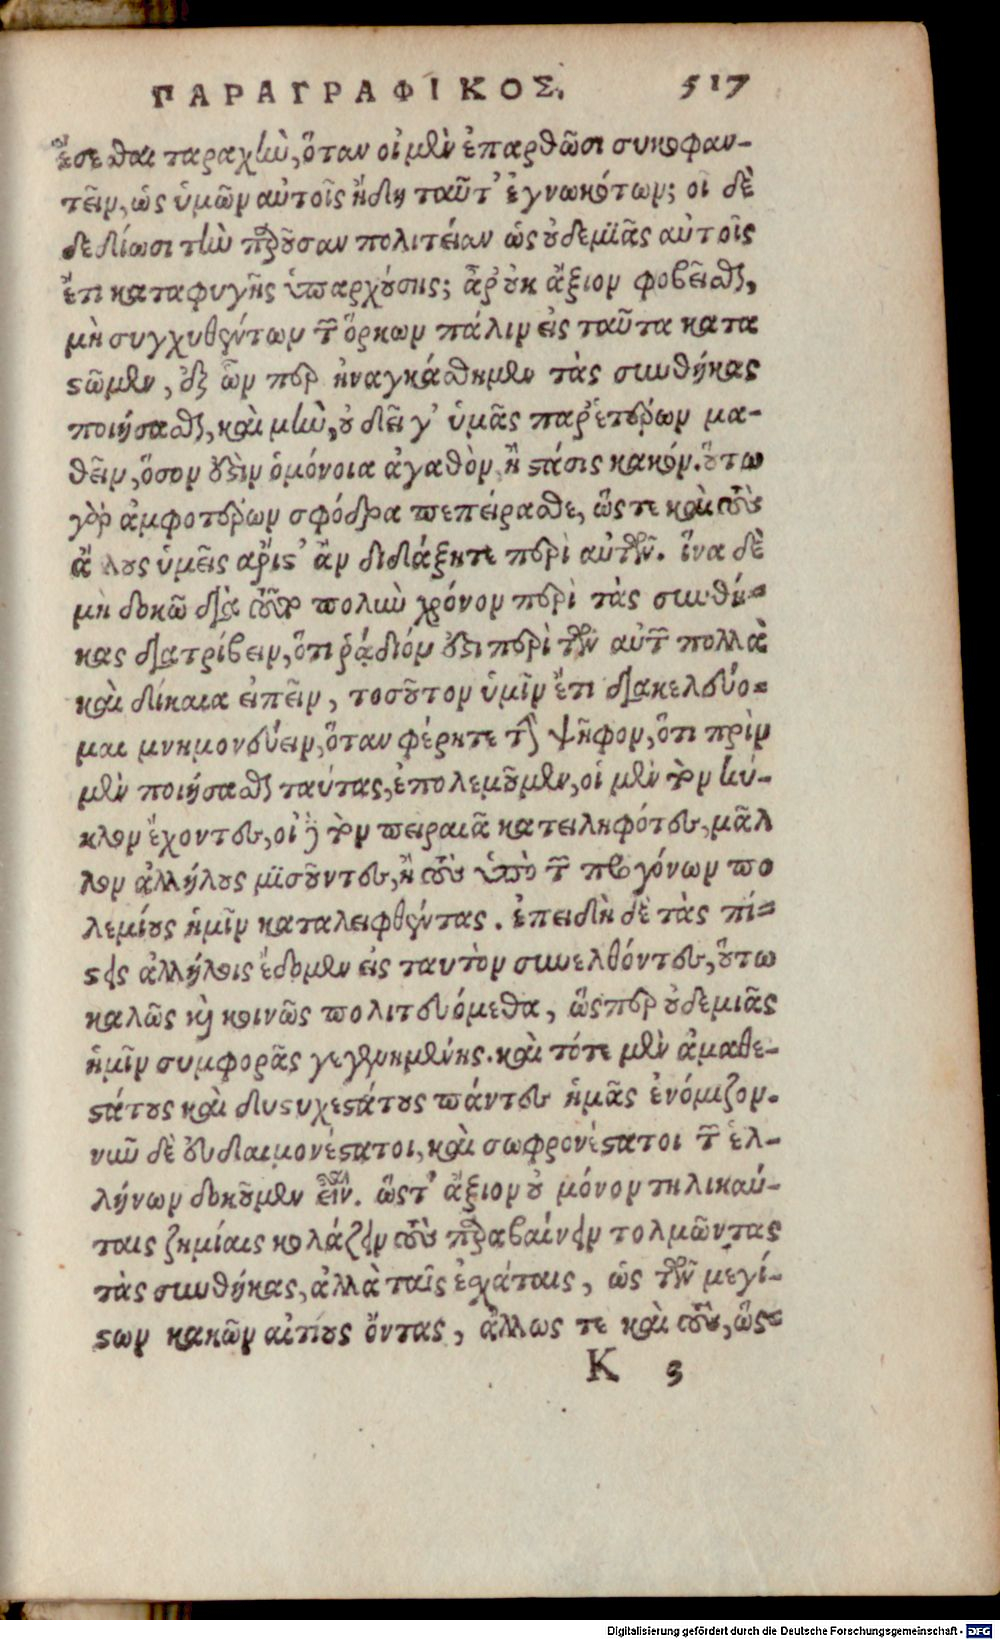 ΠΑΡΑΓΡΑΦΙΚΟΣ. 517
ἔσεσθαι ταραχὴν, ὅταν οἱ μὲν ἐπαρθῶσι συκοφαν-
τεῖν, ὡς ὑμῶν αὐτοῖς ἤδη ταῦτ' ἐγνωκότων; οἱ δὲ
δεδίωσι τὴν παροῦσαν πολιτείαν ὡς οὐδεμϊᾶς αὐτοῖς
ἔτι καταφυγῆς ὑπαρχούσης; ἆρ' οὐκ ἄξιον φοβεῖσθαι,
μὴ συγχυθέντων τῶν ὅρκων πάλιν εἰς ταῦτα κατα
στῶμεν, ἐξ ὧν περ ἠναγκάσθημεν τὰς συνθήκας
ποιήσασθαι, καὶ μὴν, οὐ δεῖ γ' ὑμᾶς παρ' ἑτέρων μα-
θεῖν, ὅσον ἐστὶν ὁμόνοια ἀγαθὸν, ἢ στάσις κακόν. οὕτω
γὰρ ἀμφοτέρων σφόδρα πεπείρασθε, ὥστε καὶ τοὺς
ἄλλους ὑμεῖς ἄριστ' ἂν διδάξητε περὶ αὐτῶν. ἵνα δὲ
μὴ δοκῶ διὰ τοῦτο πολὺν χρόνον περὶ τὰς συνθή-
κας διατρίβειν, ὅτι ῥᾴδιόν ἐστι περὶ τῶν αὐτῶν πολλὰ
καὶ δίκαια εἰπεῖν, τοσοῦτον ὑμῖν ἔτι διακελεύο-
μαι μνημονεύειν, ὅταν φέρητε τὴν ψῆφον, ὅτι πρὶν
μὲν ποιήσασθαι ταύτας, ἐπολεμοῦμεν, οἱ μὲν τὸν κύ-
κλον ἔχοντες, οἱ δὲ τὸν πειραιᾶ κατειληφότες, μᾶλ
λον ἀλλήλους μϊσοῦντες, ἢ τοὺς ὑπὸ τῶν προγόνων πο
λεμίους ἡμῖν καταλειφθέντας. ἐπειδὴ δὲ τὰς πί-
στεις ἀλλήλοις ἔδομεν εἰς ταυτὸν συνελθόντες, οὕτω
καλῶς καὶ κοινῶς πολιτευόμεθα, ὥσπερ οὐδεμιᾶς
ἡμῖν συμφορᾶς γεγενημένης. καὶ τότε μὲν ἀμαθε-
στάτους καὶ δυστυχεστάτους πάντες ἡμᾶς ἐνόμιζον.
νῦν δὲ εὐδαιμονέστατοι, καὶ σωφρονέστατοι τῶν ἑλ-
λήνων δοκοῦμεν εἶναι. ὥστ' ἄξιον οὐ μόνον τηλικαύ-
ταις ζημίαις κολάζειν τοὺς παραβαίνειν τολμῶντας
τὰς συνθήκας, ἀλλὰ ταῖς ἐσχάταις, ὡς τῶν μεγί-
στων κακῶν αἰτίους ὄντας, ἄλλως τε καὶ τοὺς, ὥσ-
K 3
Digitalisierung gefördert durch die Deutsche Forschungsgemeinschaft - DFG